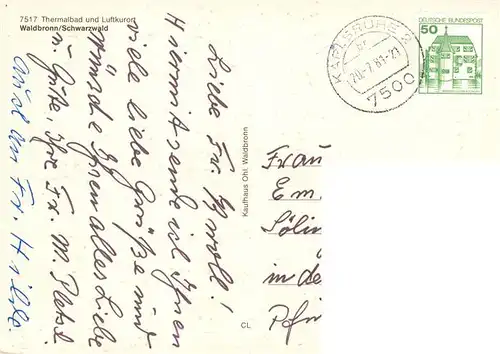 7517 Thermalbad und Luftkurort
Waldbronn/Schwarzwald
Liebe Fr.
Hiermit sende ich Ihnen
viele liebe Grüße und
wünsche Ihnen alles Liebe
u. Gute, Ihre Fr. M.
auch an Fr.
Kaufhaus Ohl. Waldbronn
CL
KARLSRUHE 2
br
20.-7.81-21
7500
DEUTSCHE BUNDESPOST
50
Frau
Em.
Sölin
in de